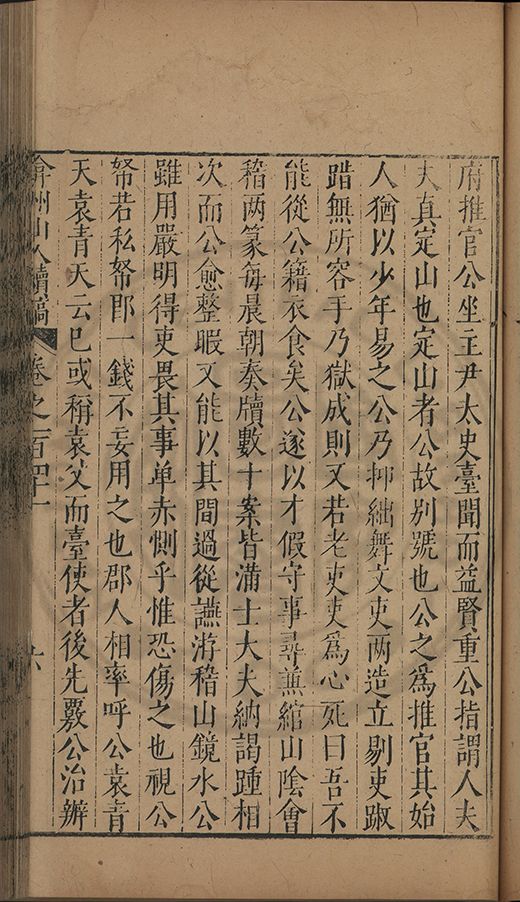 府推官公坐主尹太史臺聞而益賢重公指謂人夫
夫真定山也定山者公故别號也公之爲推官其始
人猶以少年易之公乃抑絀舞文吏两造立剔吏踧
踖無所容手乃獄成則又若老吏吏爲心死曰吾不
能從公籍衣食矣公遂以才假守事尋兼綰山陰會
稽两篆每晨朝奏牘數十案皆滿士大夫納謁踵相
次而公愈整暇又能以其間過從讌游稽山鏡水公
雖用嚴明得吏畏其事单赤惻乎惟恐傷之也視公
帑若私帑郡一錢不妄用之也郡人相率呼公袁青
天袁青天云巳或稱袁父而臺使者後先覈公治辦
弇州山人續稿 卷之一百四十一 六